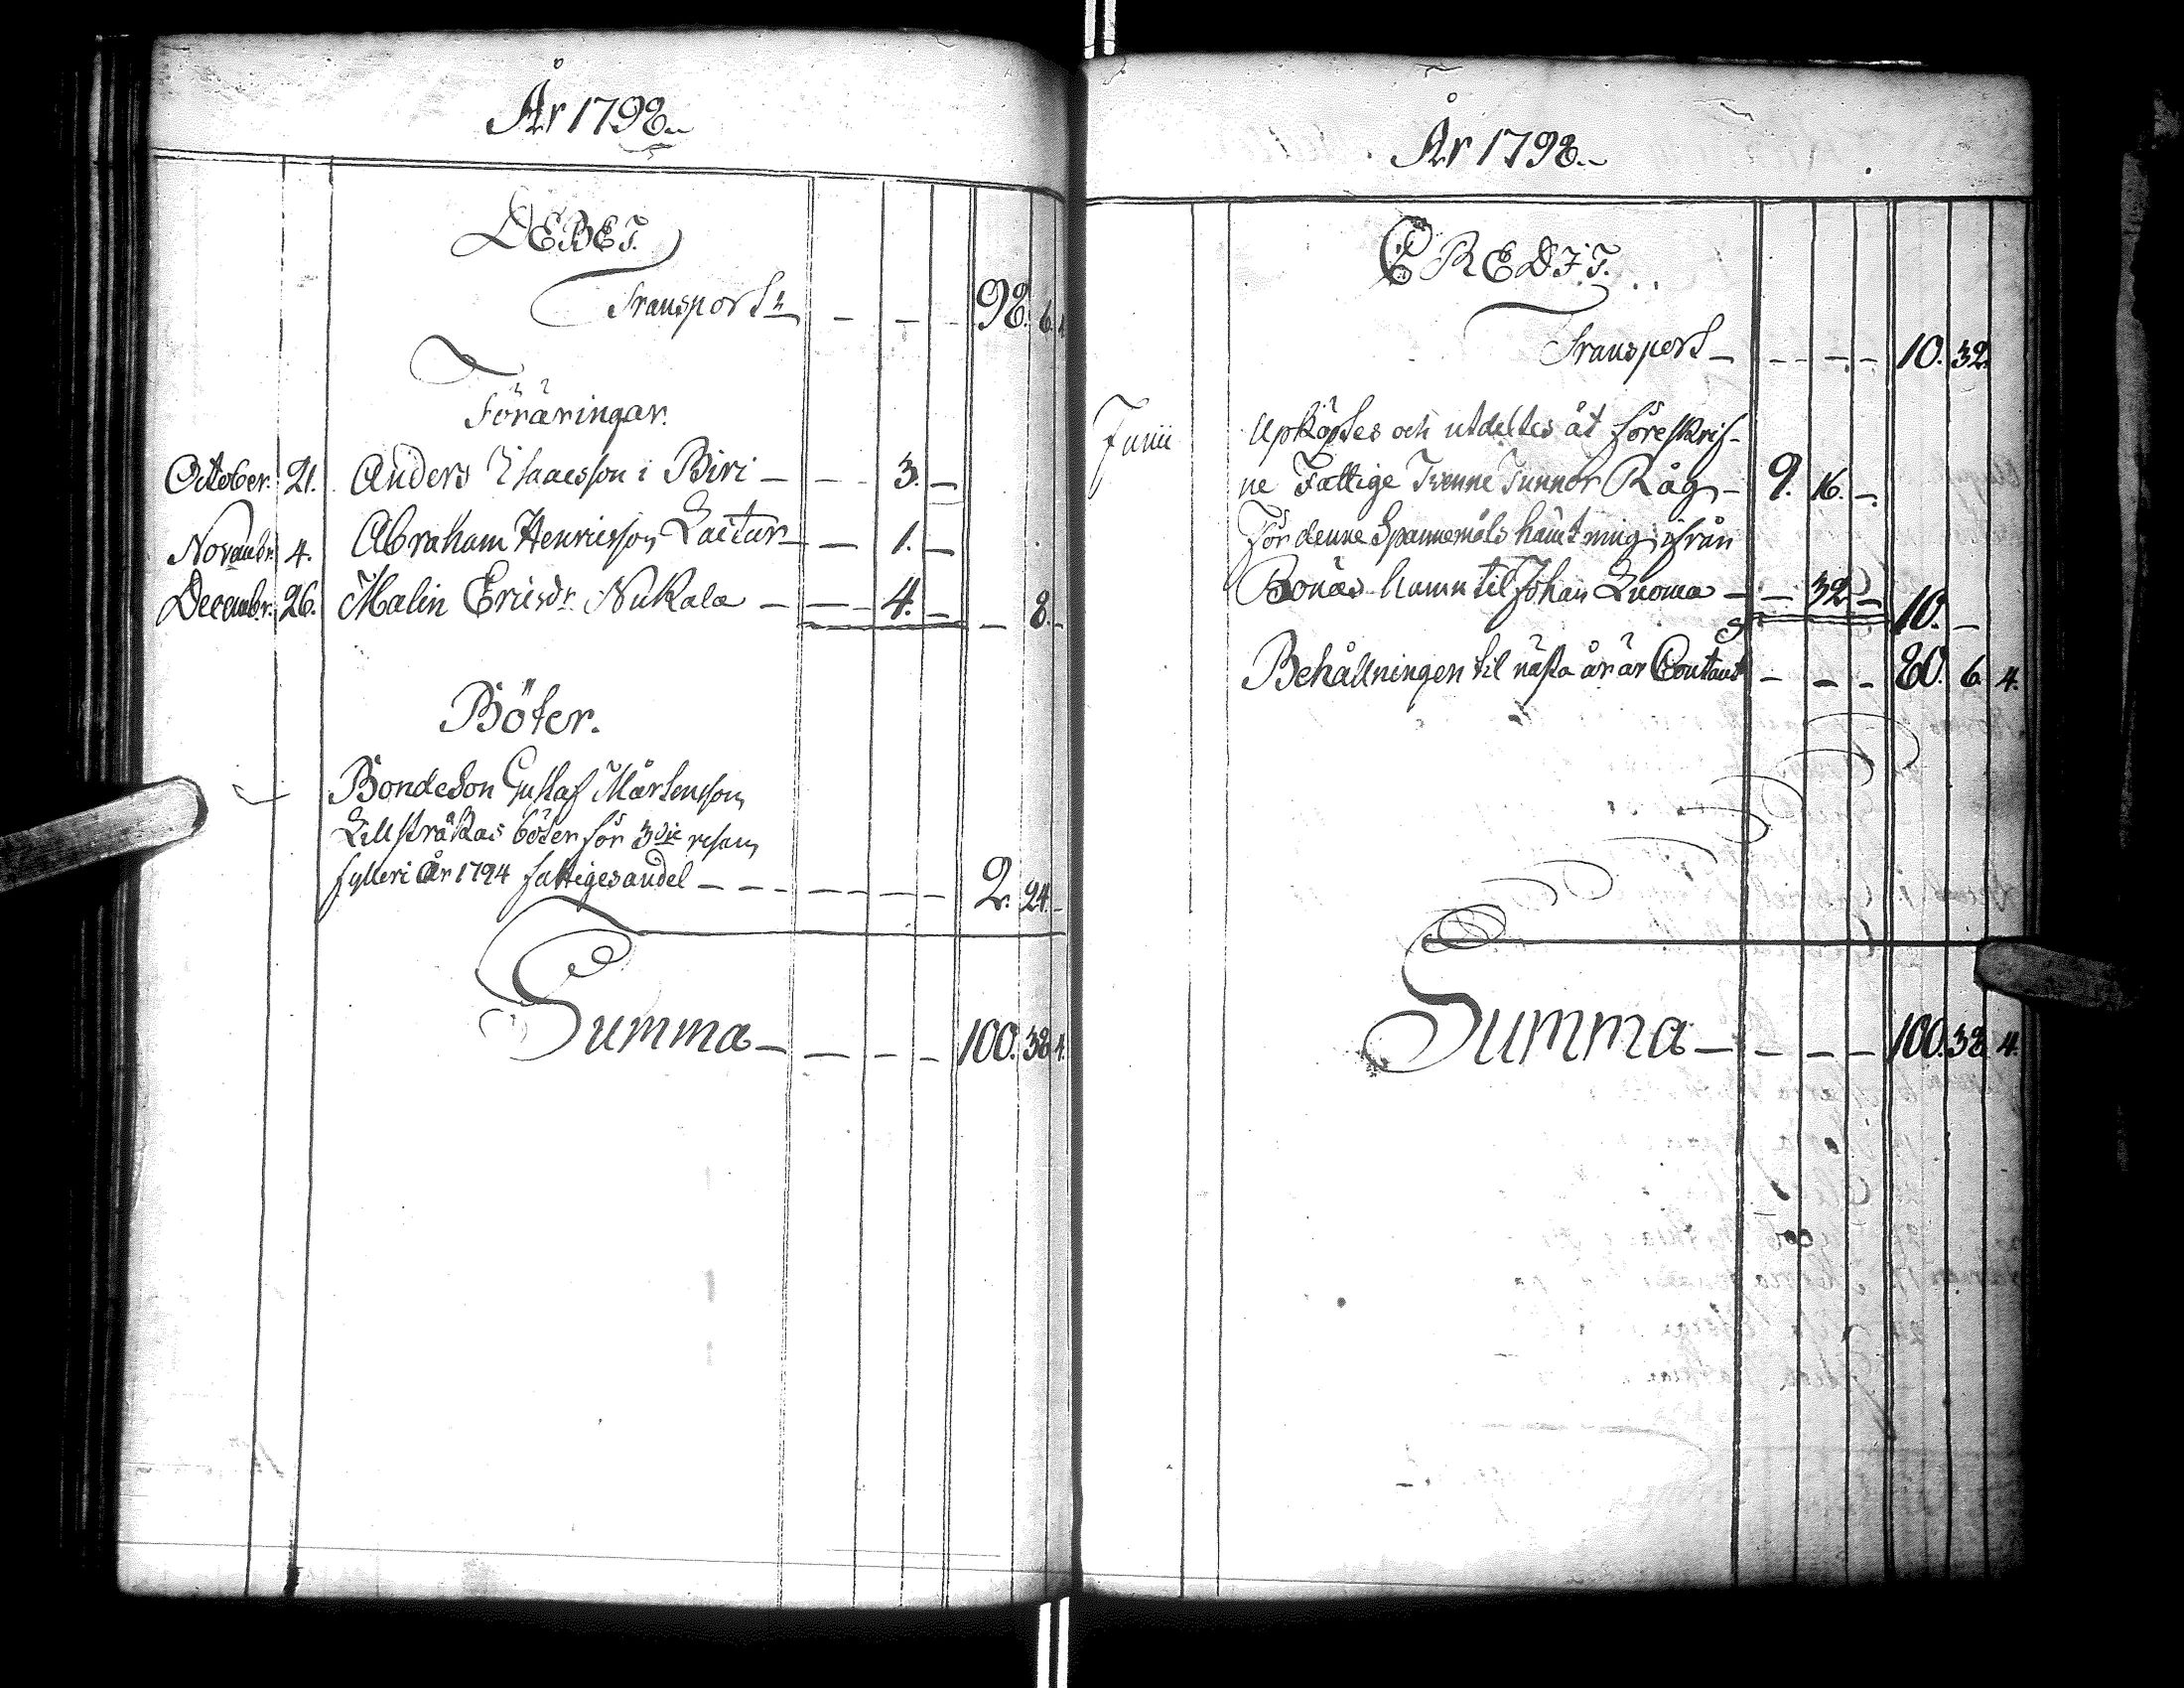 År 1798.
DEBET.
Transport - - - 98. 6.
Föräringar.
October. 21. Anders Isaacsson i Biri - - - 3. -
Novembr. 4. Abraham Henricsson Laitur - - 1. -
Decembr. 26. Malin Ericsdr. Nukala - - 4. - - 8. -
Böter.
BondeSon Gustaf Mårtensson
Lillstråkas böter för 3dje resan
fylleri År 1794 fattigesandel - - - - - - - 2. 24. -
Summa - - - - 100. 38. 4.
År 1798.
CREDIT.
Transport - - - - - 10. 32.
Junii Upköptes och utdeltes åt föreskrif-
ne Fattige Tvenne Tunnor Råg - 9. 16. -
För denne Spannemåls hämtning ifrån
Bonäs hamn til Johan Luoma - - 32 - 10. -
Behållningen til nästa år är Contant - - - 80. 6. 4.
Summa - - - - 100. 38. 4.